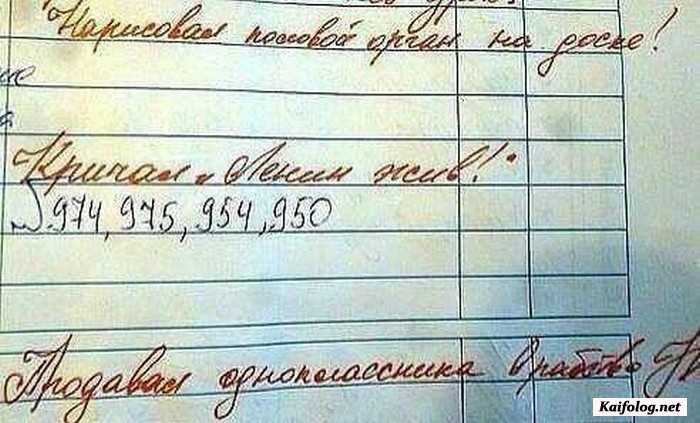 Нарисовал половой орган на доске!
Кричал „Ленин жив!"
974, 975, 954, 950
Продавал одноклассника в рабство
Kaifolog.net